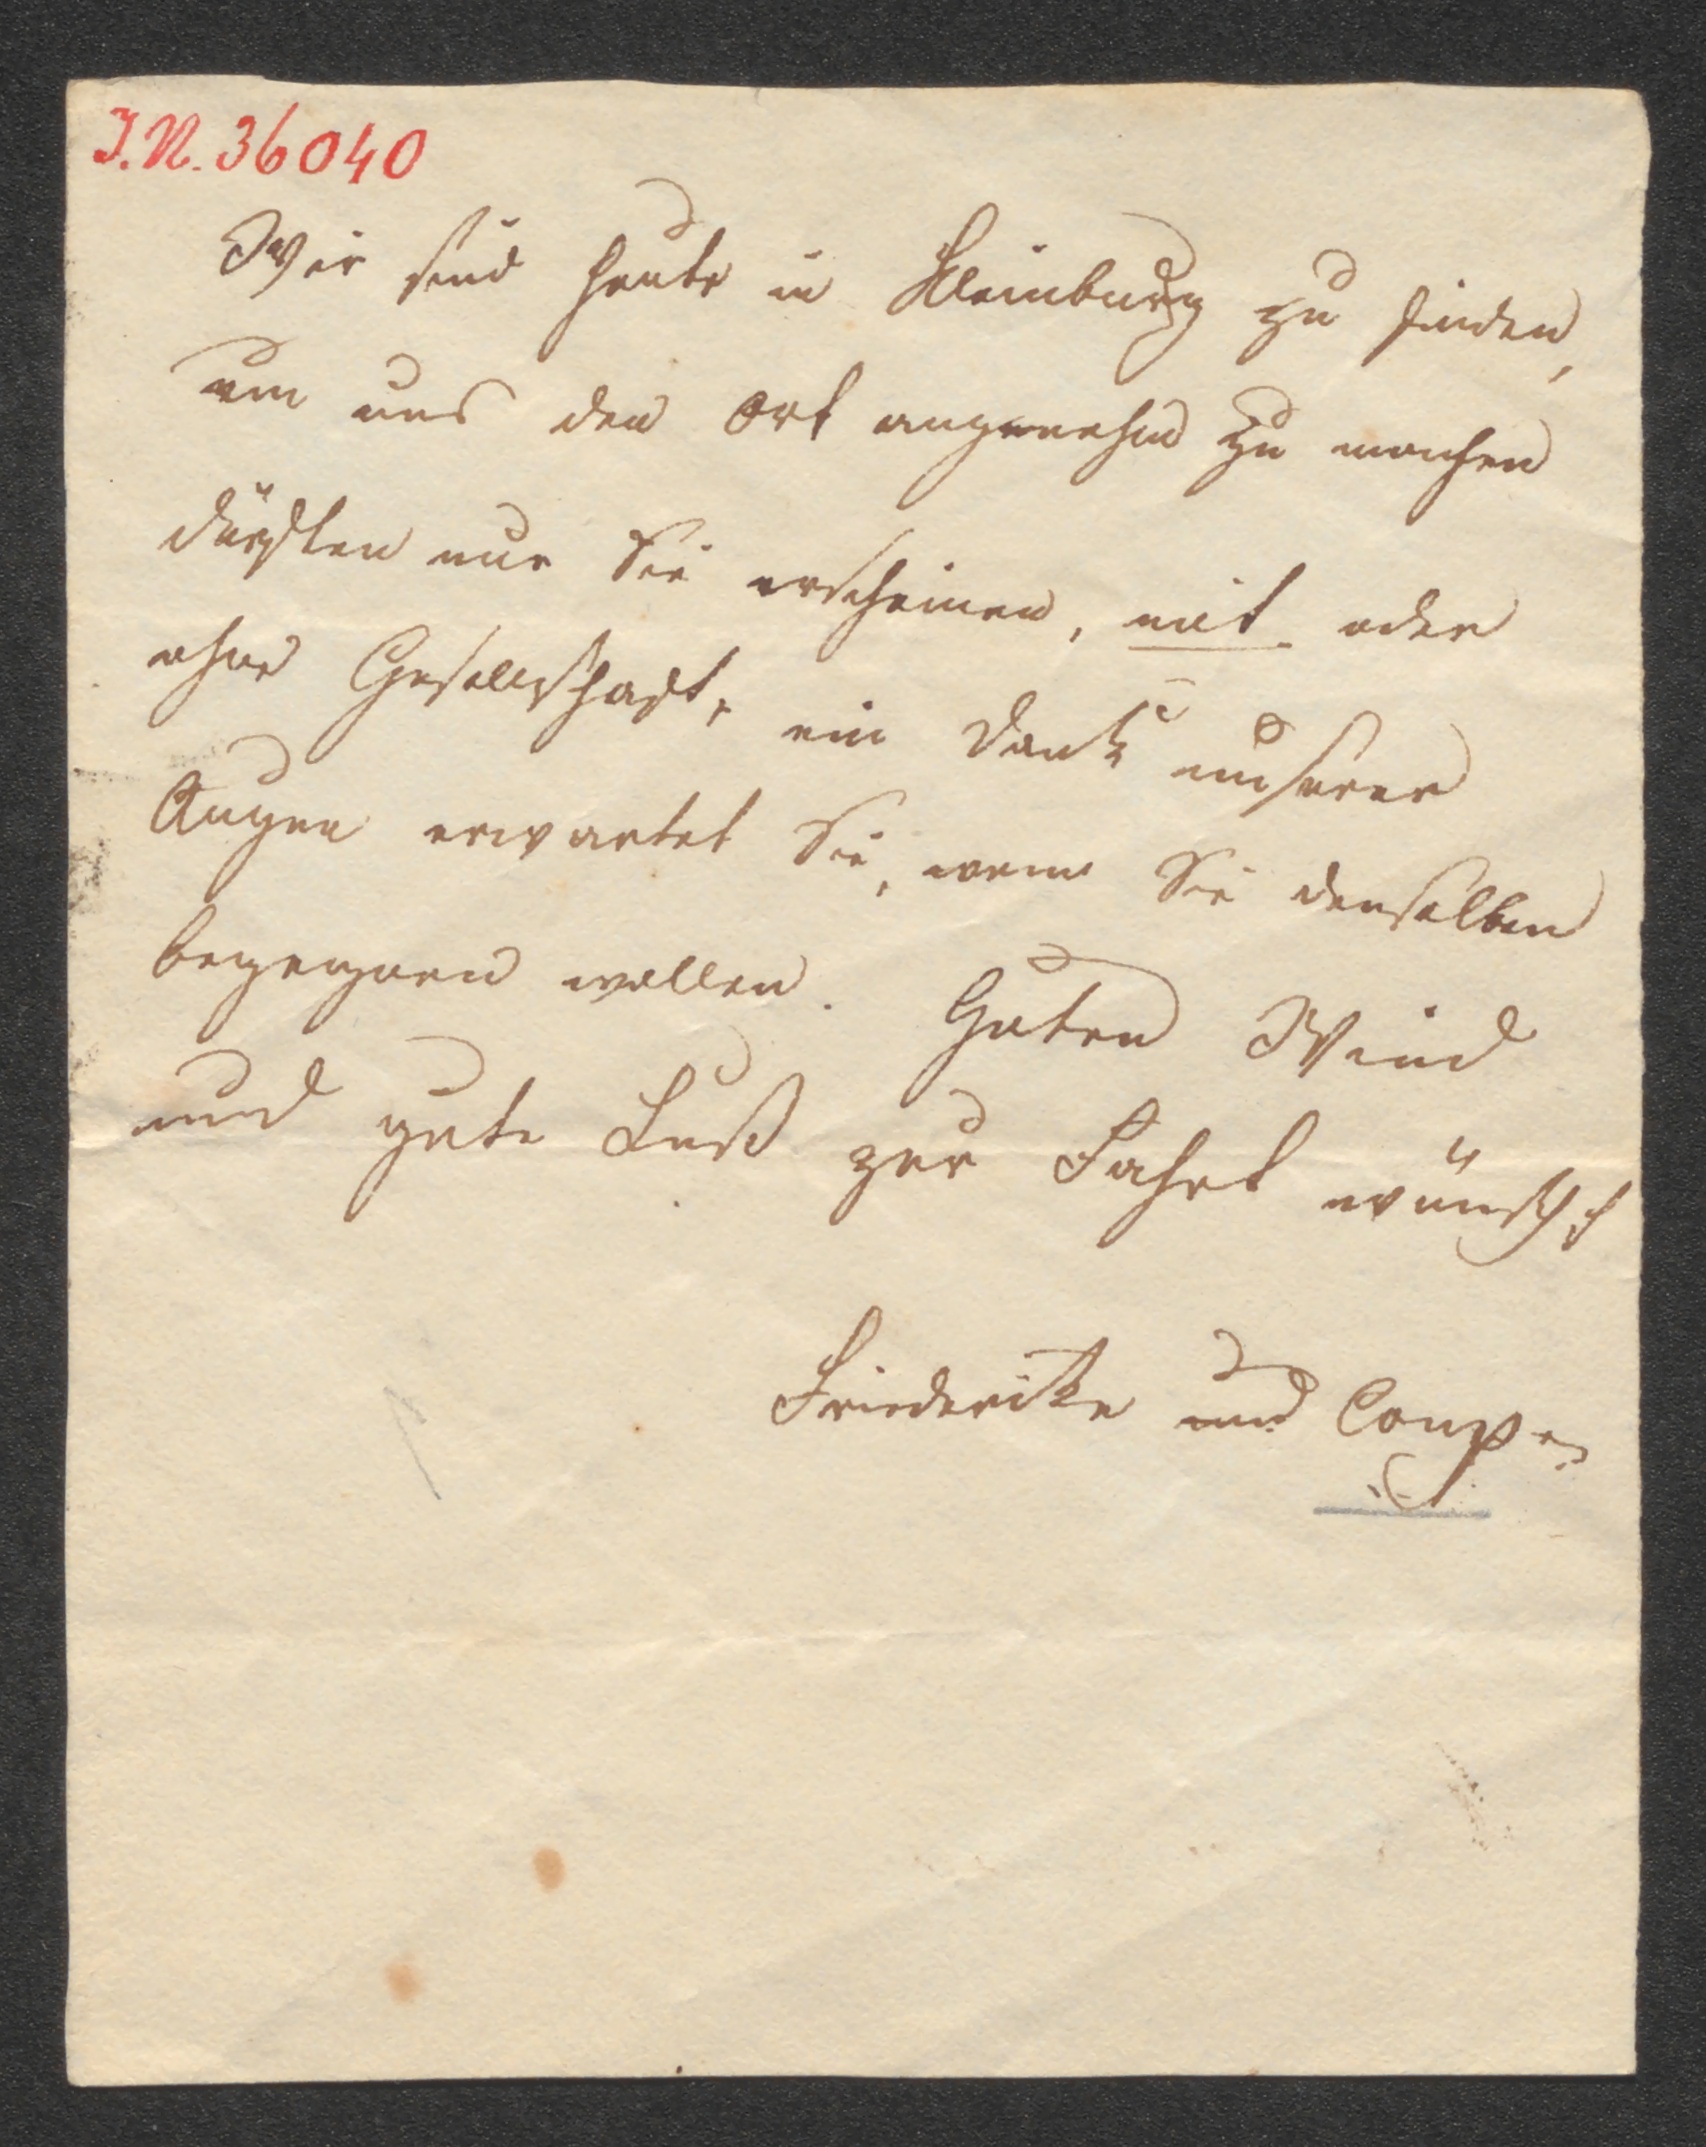 I.N. 36040
Wir sind heute in Kleinburg zu finden,
um uns den Ort angenehm zu machen
dürften nur Sie erscheinen, mit oder
ohne Gesellschaft, ein Dank unserer
Augen erwartet Sie, wenn Sie denselben
begegnen wollen. Guten Wind
und gute Lust zur Fahrt wünscht
Friederike und Comp.